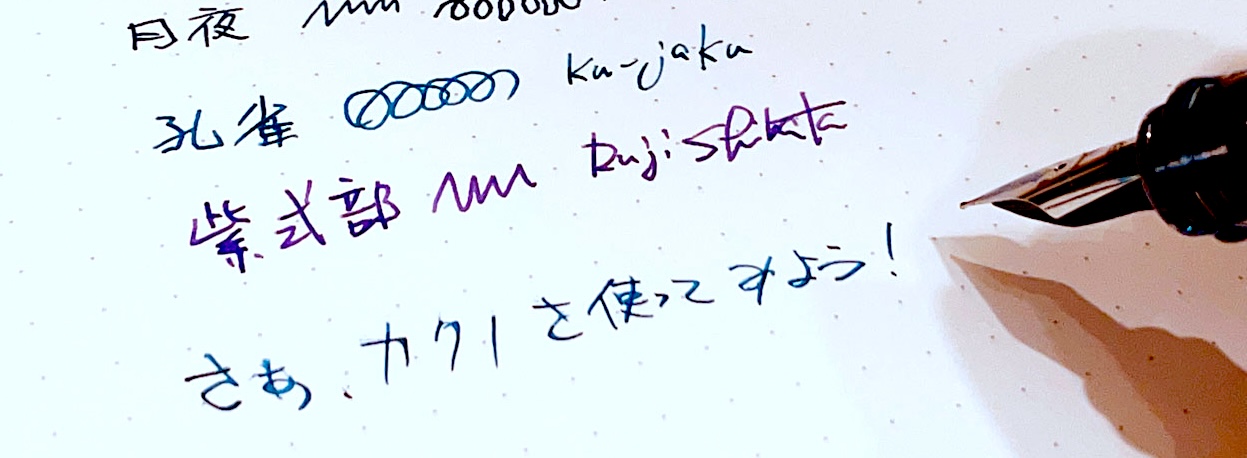 月夜
孔雀 ku-jaku
紫式部
さあ、カクノを使ってみよう！